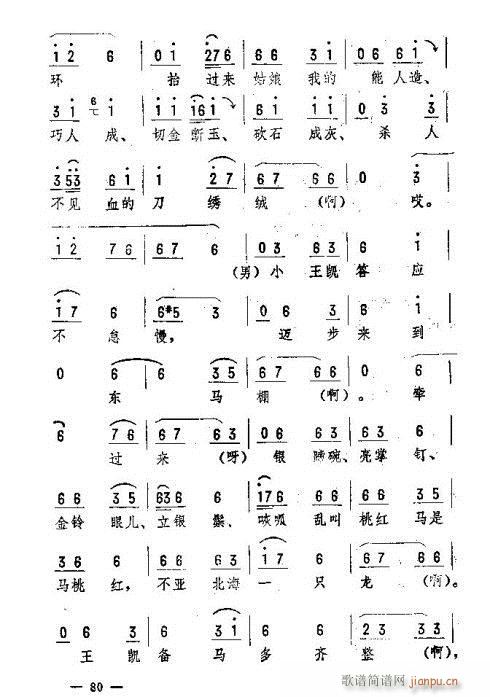 i 2 6 0 i 276 6 6 3 i 06 6 i
环 抬过来 姑娘 我的 能人造、
3 i 6 i 0 i i 6 i i i 0 3 3
巧人成、切金断玉、砍石成灰、杀人
3 53 6 i i 2 7 67 6 0 3
不见血的刀绣绒 (啊) 哎。
i 2 7 6 67 6 03 6 3 6 i
(男)小王凯答应
i 7 6 6#5 3 06 3 6 i
不怠慢, 迈步来到
0 6 6 3 5 67 6 6
东马棚 (啊)。牵
6 7 6 67 63 06 6 6 3 6
过来 (呀) 银 碗、亮掌钉、
66 35 636 66 i76 66 66 35
金铃眼儿、立银鬃、咴呱乱叫桃红马是
6 3 6 6 6 6 6 3 i 7 6 67 66
马桃红,不亚北海一只龙 (啊)。
06 6 3 6 3 i 6 6 3 67 66
王凯备马多齐整 (啊),
— 80 —
歌谱简谱网
jianpu.cn